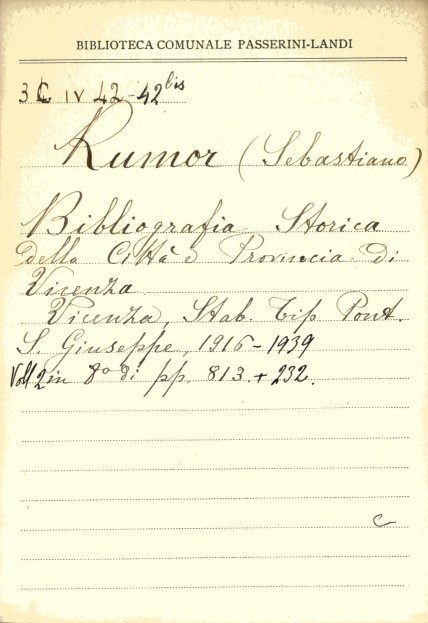 BIBLIOTECA COMUNALE PASSERINI-LANDI
3 C IV 42-42 bis
Rumor (Sebastiano)
Bibliografia Storica
della Città e Provincia di
Vicenza
Vicenza, Stab. Tip Pont.
S. Giuseppe, 1916-1939
Voll 2 in 8º di pp. 813. + 232.
C